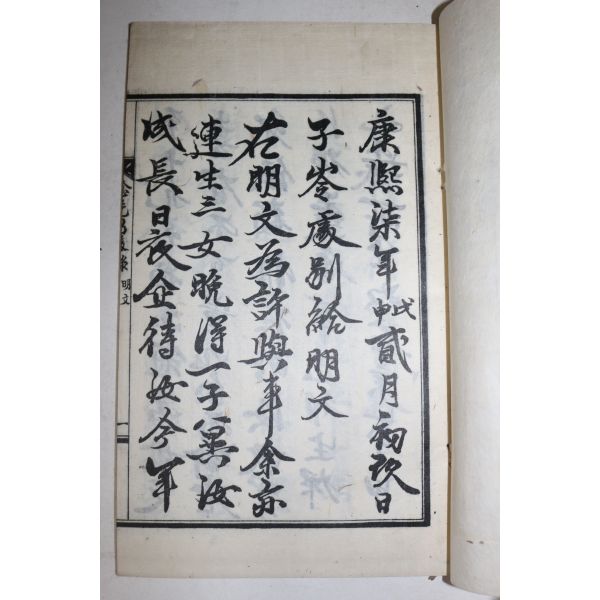 康熙柒年戊申貳月初玖日
子岺處別給明文
右明文為許與事余亦
連生三女晚得一子冀汝
成長日夜企待汝今年
明文
一